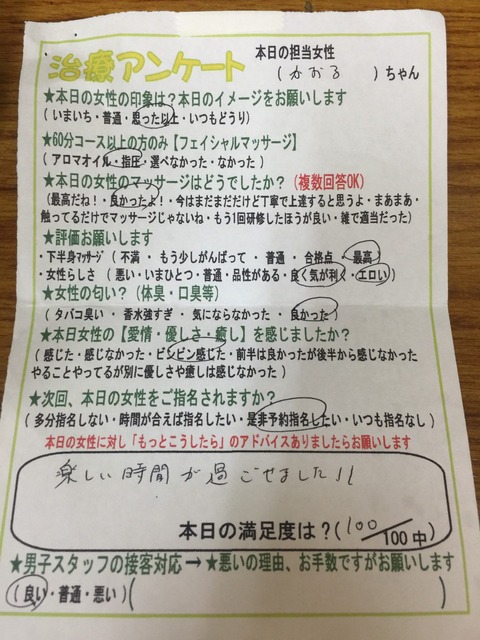 本日の担当女性
治療アンケート (かおる)ちゃん
★本日の女性の印象は?本日のイメージをお願いします
(いまいち・普通・思った以上・いつもどうり)
★60分コース以上の方のみ【フェイシャルマッサージ】
(アロマオイル・指圧・選べなかった・なかった)
★本日の女性のマッサージはどうでしたか?(複数回答OK)
(最高だね!・良かったよ!・今はまだまだだけど丁寧で上達すると思うよ・まあまあ・
触ってるだけでマッサージじゃないね・もう1回研修したほうが良い・雑で適当だった)
★評価お願いします
・下半身マッサージ(不満・もう少しがんばって・普通・合格点・最高)
・女性らしさ(悪い・いまひとつ・普通・品性がある・良く気が利く・エロい)
★女性の匂い?(体臭・口臭等)
(タバコ臭い・香水強すぎ・気にならなかった・良かった)
★本日女性の【愛情・優しさ・癒し】を感じましたか?
(感じた・感じなかった・ビンビン感じた・前半は良かったが後半から感じなかった
やることやってるが別に優しさや癒しは感じなかった)
★次回、本日の女性をご指名されますか?
(多分指名しない・時間が合えば指名したい・是非予約指名したい・いつも指名なし)
本日の女性に対し「もっとこうしたら」のアドバイスありましたらお願いします
楽しい時間が過ごせました!!
本日の満足度は?(100/100中)
★男子スタッフの接客対応→★悪いの理由、お手数ですがお願いします
(良い・普通・悪い)( )